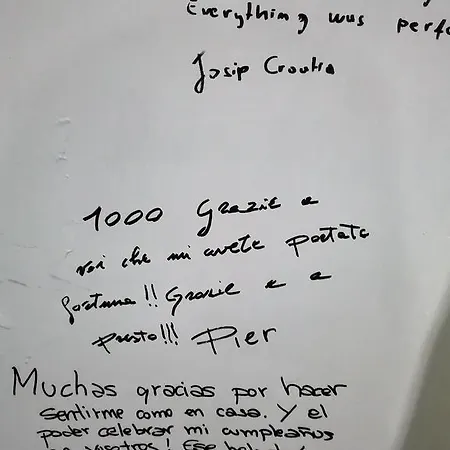 Everything was perfe
Josip Croatia
1000 Grazie a
voi che mi avete portato
fortuna!! Grazie e a
presto!!! Pier
Muchas gracias por hacer
sentirme como en casa. Y el
poder celebrar mi cumpleaños
vosotros! Ese